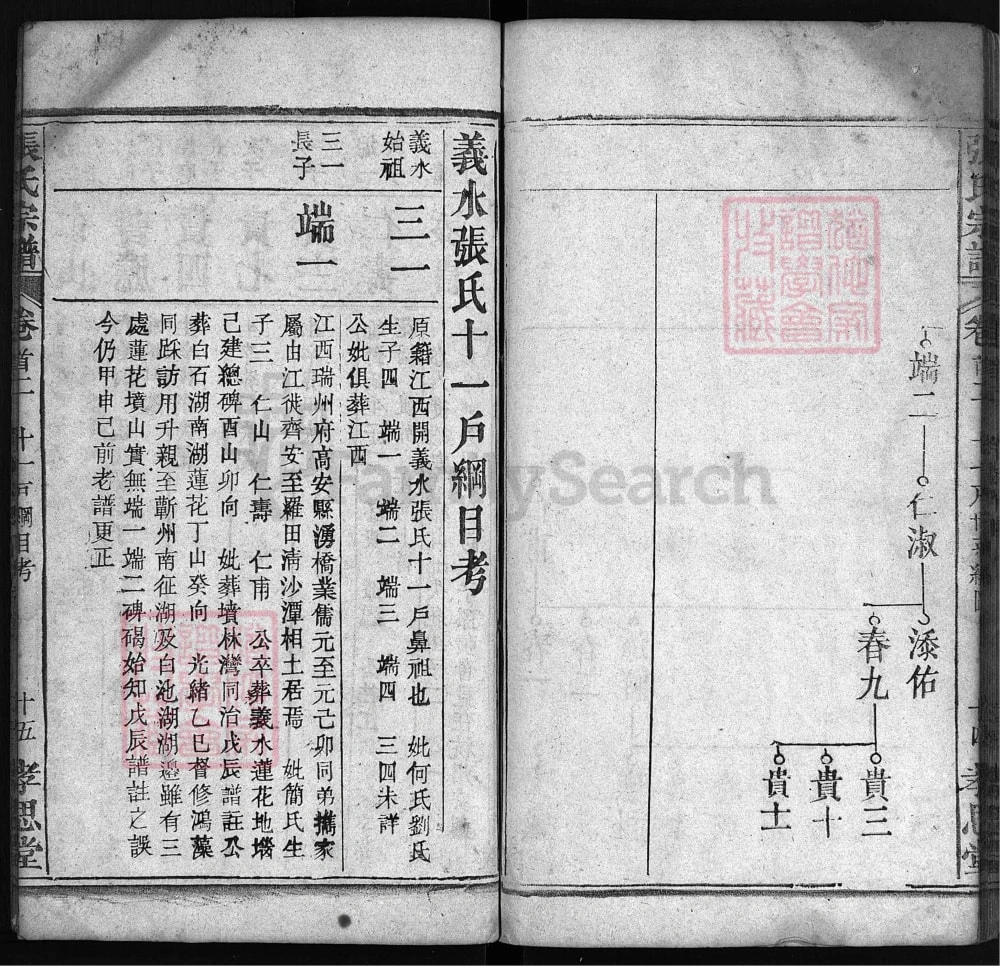 張氏宗譜
端二
仁淑
添佑
春九
貴三
貴十
貴士
孝思堂
義水張氏十一戶綱目考
義水始祖
三一
原籍江西開義水張氏十一戶鼻祖也 妣何氏劉氏
生子四 端一 端二 端三 端四 三四未詳
公妣俱葬江西
三一長子
端一
江西瑞州府高安縣湧橋業儒元至元己卯同弟攜家
屬由江徙齊安至羅田淸沙潭相土居焉 妣簡氏生
子三 仁山 仁壽 仁甫 公卒葬義水蓮花地塅
己建總碑酉山卯向 妣葬墳林灣同治戊辰譜註公
葬白石湖南湖蓮花丁山癸向 光緒乙巳督修鴻藻
同踩訪用升親至蘄州南征湖及白池湖湖邉雖有三
處蓮花墳山實無端一端二碑碣始知戊辰譜註之誤
今仍甲申己前老譜更正
張氏宗譜
卷首二 十一戶綱目考
十五
孝思堂
FamilySearch